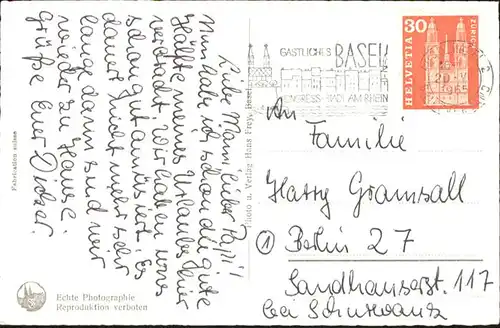 Liebe Mami, lieber Papi!
Nun habe ich schon die gute
Hälfte meines Urlaubes hier
verbracht. Wir haben uns
schon gut amüsiert. Es
dauert nicht mehr sehr
lange dann sind wir
wieder zu Hause.
Grüße Euer Dieter.
Fabrication suisse
Echte Photographie
Reproduktion verboten
Photo u. Verlag Hans Frey, Basel
GASTLICHES BASEL
KONGRESS-STADT AM RHEIN
1965
30
HELVETIA
ZÜRICH
An
Familie
Harry Gramsall
1 Berlin 27
Sandhauserst. 117
bei